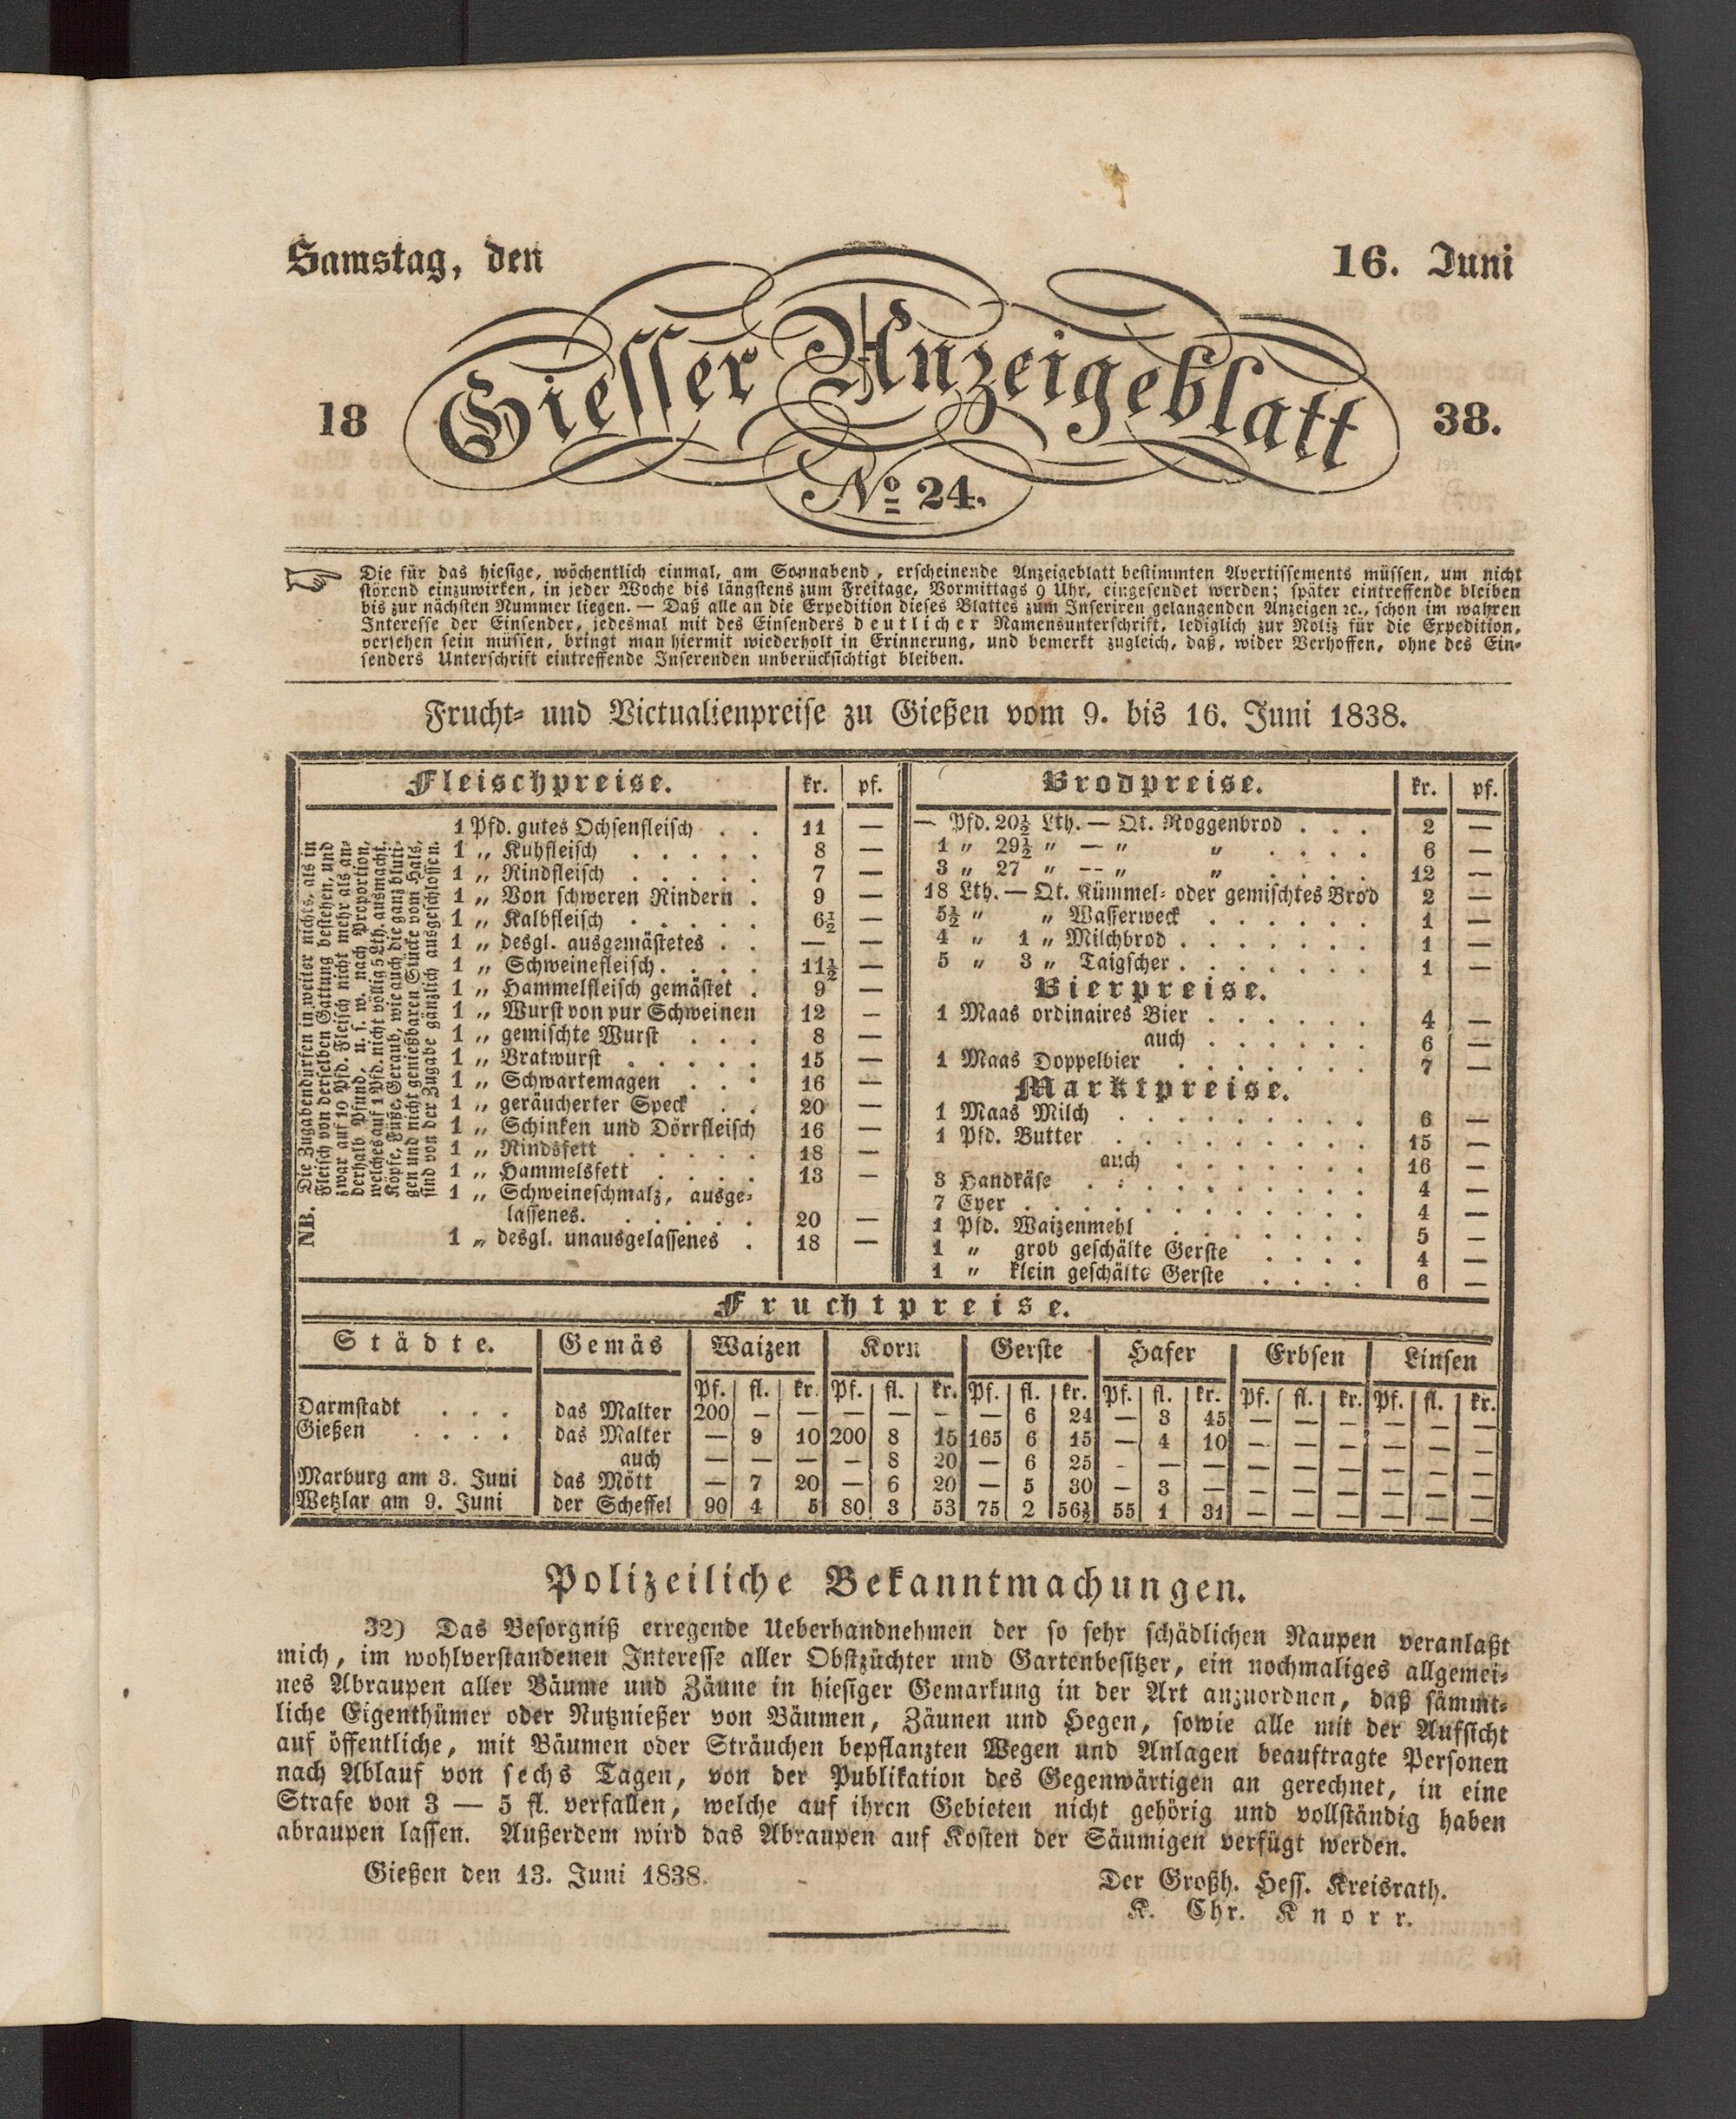 Samstag, den
16. Juni
18
Giesser Anzeigeblatt
38.
No 24.
Die für das hiesige, wöchentlich einmal, am Sonnabend, erscheinende Anzeigeblatt bestimmten Avertissements müssen, um nicht
störend einzuwirken, in jeder Woche bis längstens zum Freitage, Vormittags 9 Uhr, eingesendet werden; später eintreffende bleiben
bis zur nächsten Nummer liegen. — Daß alle an die Expedition dieses Blattes zum Inseriren gelangenden Anzeigen ꝛc., schon im wahren
Interesse der Einsender, jedesmal mit des Einsenders deutlicher Namensunterschrift, lediglich zur Notiz für die Expedition,
versehen sein müssen, bringt man hiermit wiederholt in Erinnerung, und bemerkt zugleich, daß, wider Verhoffen, ohne des Ein-
senders Unterschrift eintreffende Inserenden unberücksichtigt bleiben.
Frucht- und Victualienpreise zu Gießen vom 9. bis 16. Juni 1838.
Fleischpreise. kr. pf.
NB. Die Zugaben dürfen in weiter nichts, als in
Fleisch von derselben Gattung bestehen, und
zwar auf 10 Pfd. Fleisch nicht mehr als an-
derhalb Pfund, u. s. w. nach Proportion,
welches auf 1 Pfd. nicht völlig 5 Lth. ausmacht.
Köpfe, Füße, Geraub, wie auch die ganz bluti-
gen und nicht genießbaren Stücke vom Hals,
sind von der Zugabe gänzlich ausgeschlossen.
1 Pfd. gutes Ochsenfleisch . . 11 —
1 „ Kuhfleisch . . . . . 8 —
1 „ Rindfleisch . . . . . 7 —
1 „ Von schweren Rindern . 9 —
1 „ Kalbfleisch . . . . . 6½ —
1 „ desgl. ausgemästetes . . — —
1 „ Schweinefleisch . . . . 11½ —
1 „ Hammelfleisch gemästet . 9 —
1 „ Wurst von pur Schweinen 12 —
1 „ gemischte Wurst . . . 8 —
1 „ Bratwurst . . . . . 15 —
1 „ Schwartemagen . . . 16 —
1 „ geräucherter Speck . . 20 —
1 „ Schinken und Dörrfleisch 16 —
1 „ Rindsfett . . . . . 18 —
1 „ Hammelsfett . . . . 13 —
1 „ Schweineschmalz, ausge-
lassenes. . . . . . 20 —
1 „ desgl. unausgelassenes . 18 —
Brodpreise. kr. pf.
— Pfd. 20½ Lth. — Qt. Roggenbrod . . . 2 —
1 „ 29½ „ — „ „ . . . . 6 —
3 „ 27 „ — „ „ . . . . 12 —
18 Lth. — Qt. Kümmel- oder gemischtes Brod 2 —
5½ „ „ Wasserweck . . . . . . 1 —
4 „ 1 „ Milchbrod . . . . . . . 1 —
5 „ 3 „ Taigscher . . . . . . . 1 —
Bierpreise.
1 Maas ordinaires Bier . . . . . . 4 —
auch . . . . . . 6 —
1 Maas Doppelbier . . . . . . . 7 —
Marktpreise.
1 Maas Milch . . . . . . . . . 6 —
1 Pfd. Butter . . . . . . . . . 15 —
auch . . . . . . . 16 —
3 Handkäse . . . . . . . . . . 4 —
7 Eyer . . . . . . . . . . . . 4 —
1 Pfd. Waizenmehl . . . . . . . 5 —
1 „ grob geschälte Gerste . . . . 4 —
1 „ klein geschälte Gerste . . . . 6 —
Fruchtpreise.
Städte. Gemäs Waizen Korn Gerste Hafer Erbsen Linsen
Pf. fl. kr. Pf. fl. kr. Pf. fl. kr. Pf. fl. kr. Pf. fl. kr. Pf. fl. kr.
Darmstadt . . . das Malter 200 — — — — — — 6 24 — 3 45 — — — — — —
Gießen . . . . das Malter — 9 10 200 8 15 165 6 15 — 4 10 — — — — — —
auch — — — — 8 20 — 6 25 - — — — — — — — —
Marburg am 3. Juni das Mött — 7 20 — 6 20 — 5 30 — 3 — — — — — — —
Wetzlar am 9. Juni der Scheffel 90 4 5 80 3 53 75 2 56½ 55 1 31 — — — — — —
Polizeiliche Bekanntmachungen.
32) Das Besorgniß erregende Ueberhandnehmen der so sehr schädlichen Raupen veranlaßt
mich, im wohlverstandenen Interesse aller Obstzüchter und Gartenbesitzer, ein nochmaliges allgemei-
nes Abraupen aller Bäume und Zäune in hiesiger Gemarkung in der Art anzuordnen, daß sämmt-
liche Eigenthümer oder Nutznießer von Bäumen, Zäunen und Hegen, sowie alle mit der Aufsicht
auf öffentliche, mit Bäumen oder Sträuchen bepflanzten Wegen und Anlagen beauftragte Personen
nach Ablauf von sechs Tagen, von der Publikation des Gegenwärtigen an gerechnet, in eine
Strafe von 3 — 5 fl. verfallen, welche auf ihren Gebieten nicht gehörig und vollständig haben
abraupen lassen. Außerdem wird das Abraupen auf Kosten der Säumigen verfügt werden.
Gießen den 13. Juni 1838.
Der Großh. Hess. Kreisrath.
K. Chr. Knorr.